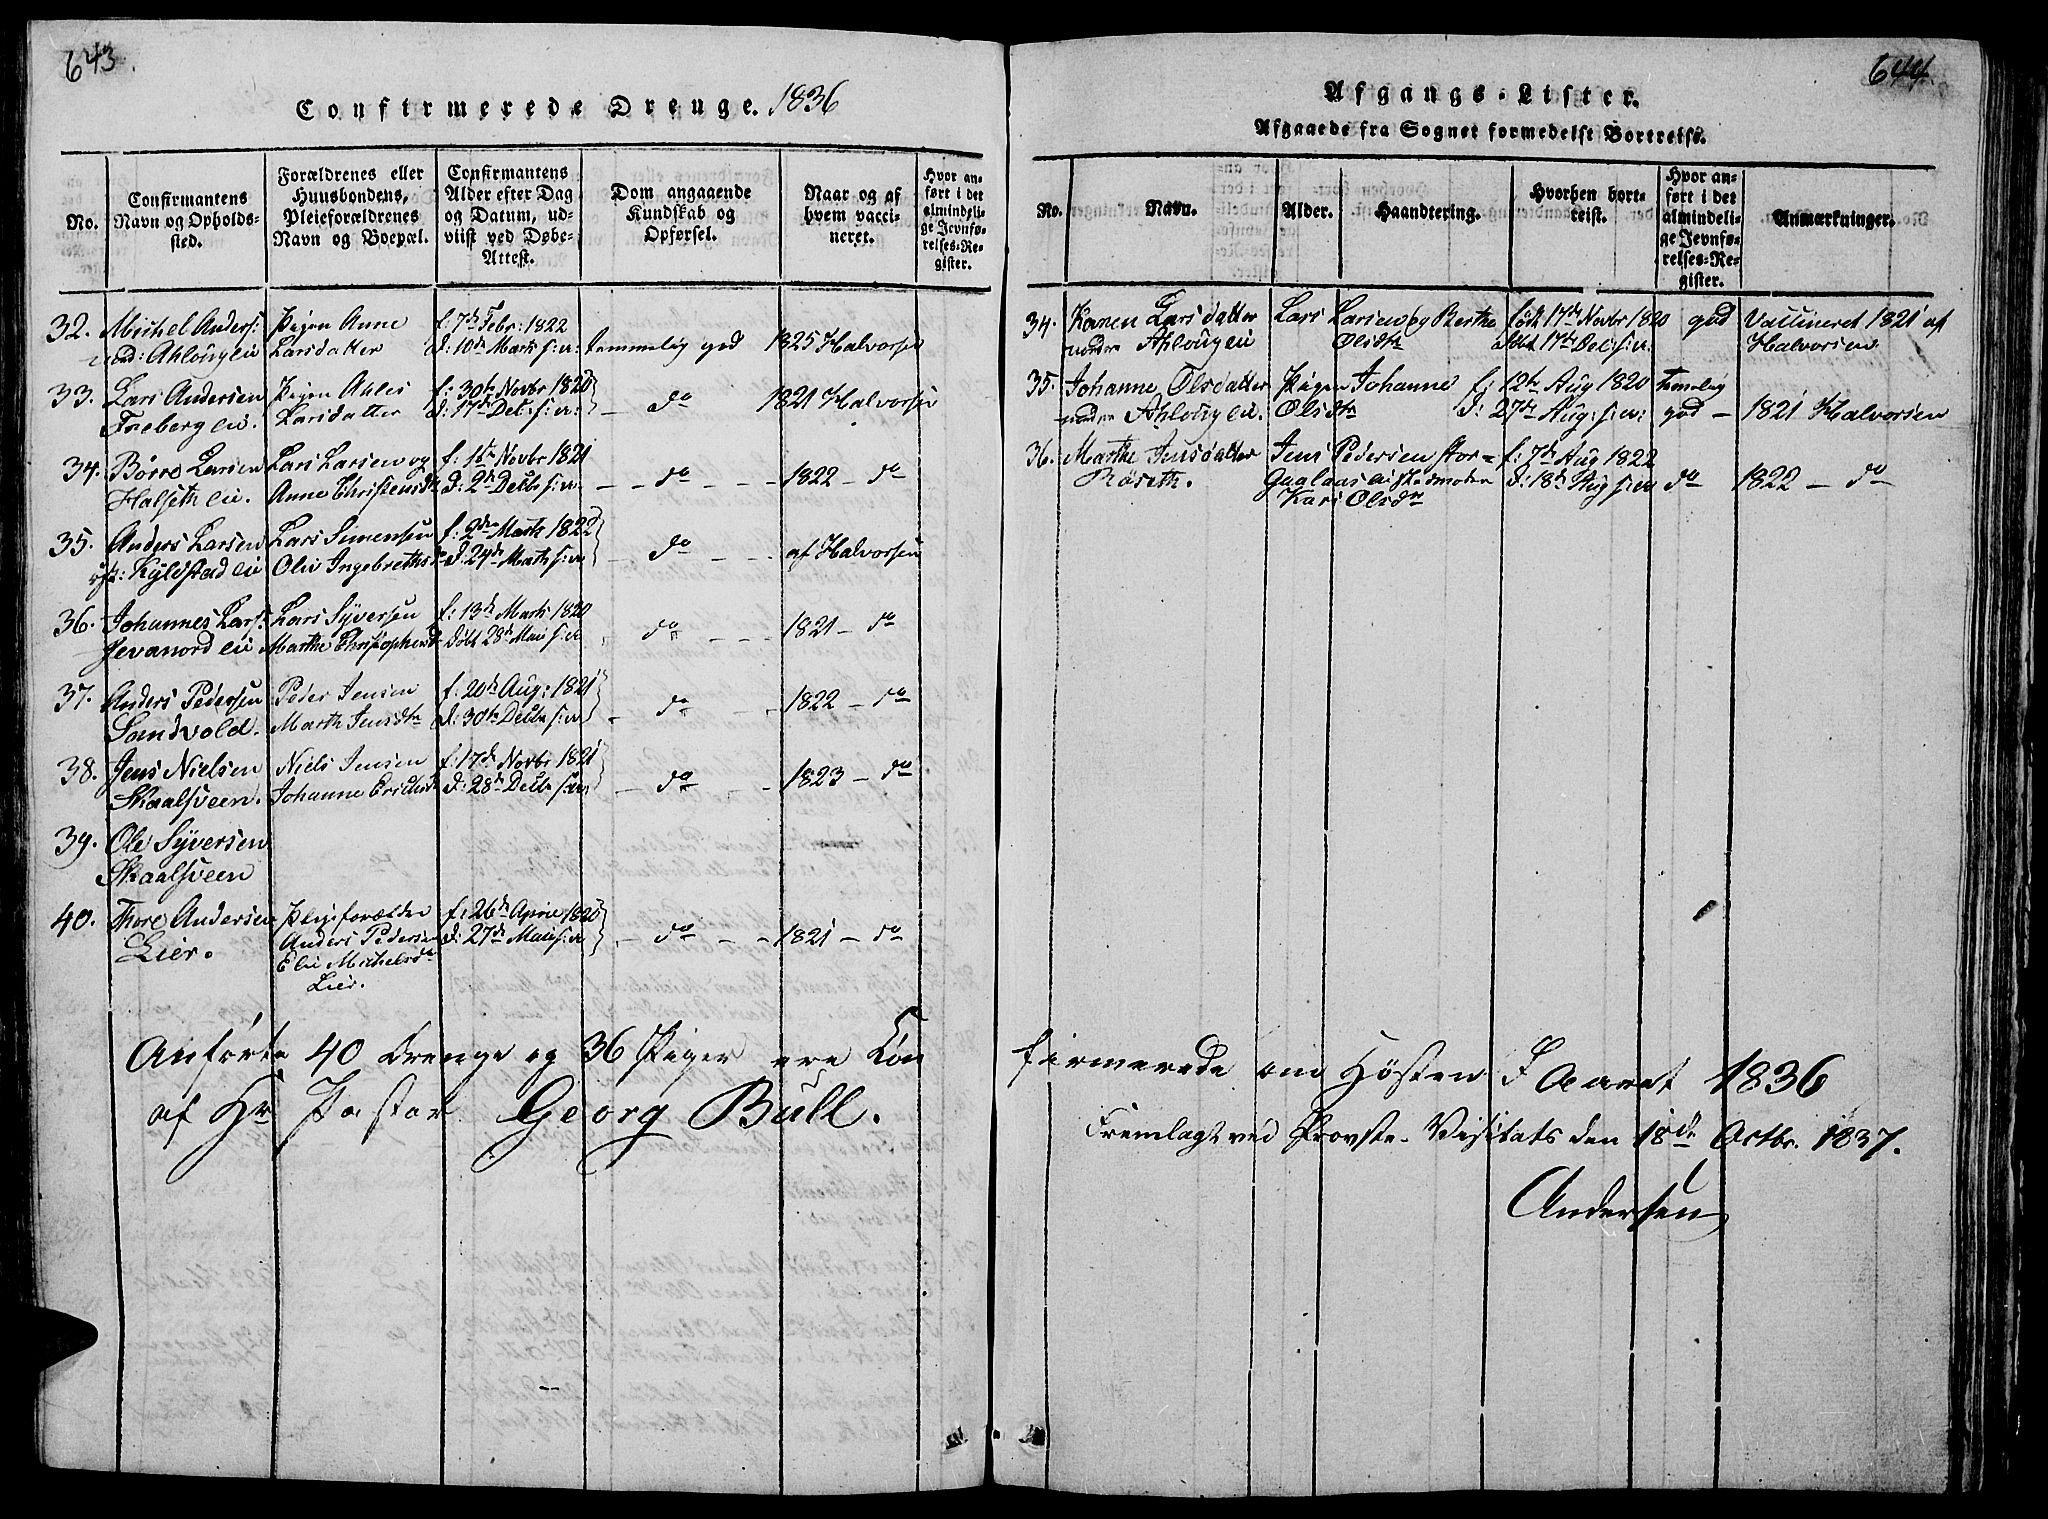 643.
Confirmerede Drenge. 1836
No.
Confirmantens Navn og Opholdssted.
Forældrenes eller Huusbondens, Pleieforældrenes Navn og Boepæl.
Confirmantens Alder efter Dag og Datum, udviist ved Døbe-Attest.
Dom angaaende Kundskab og Opførsel.
Naar og af hvem vaccineret.
Hvor anført i det almindelige Jevnførelses-Register.
32. Michel Anders: Pigen Anne f: 7de Febr: 1822
und: Ahlougeie Larsdatter d: 10de Marts s: a: temmelig god 1825 Halvorsen
33. Lars Andersen Pigen Ahles f: 30te Novbr 1820
Freberg eie. Larsdatter d: 17de Dec: s: a: – do 1821 Halvorsen
34. Børre Larsen Lars Larsen og f: 1te Novbr 1821
Halseth eie. Anne Christensdtr d: 2de Decbr s: a. – – do – – 1822 – do
35. Anders Larsen Lars Simensen f: 2den Marts 1822
Kyldstad eie Olie Ingebrethsd d: 24de Marts s: a – do – – af Halvorsen
36. Johannes Lars: Lars Syversen f: 13de Marts 1820
Jevanord eie Marthe Christophersd døbt 28de Mai s: a – do – – 1821 – do
37. Anders Pedersen Peder Jensen f: 20de Aug: 1821
Sandvold. Marth Jensdtr d: 30te Decbr s: a – do – – 1822 – do
38. Jens Nielsen Niels Jensen f: 17de Novbr 1821
Skaalsveen. Johanne Erichsd d: 28de Decbr s: a: – do – – 1823 – do
39. Ole Syversen
Skaalsveen
40. Thore Andersen Pleieforælder f: 26de April 1820
Lier. Anders Pedersen d: 27de Mai s: a – do – – 1821 – do
Elie Michelsdr
Lier.
Anførte 40 Drenge og 36 Piger ere Con
af Hr Pastor Georg Bull.
644.
Afgangs-Lister.
Afgaaede fra Sognet formedelst Bortreise.
No.
Navn.
Alder.
Haandtering.
Hvorhen bortreist.
Hvor anført i det almindelige Jevnførelses-Register.
Anmærkninger.
34. Karen Larsdatter Lars Larsen og Berthe født 17de Novbr 1820 god Vaccineret 1821 af
under Ahlougeie Olsdtr døbt 17de Dec: s: a: Halvorsen
35. Johanne Olsdatter Pigen Johanne f: 12te Aug 1820 temelig
under Ahlougeie. Olsdtr d: 27de Aug: s: a: god – 1821 Halvorsen
36. Marthe Jensdatter Jens Pedersen Stor= f: 7de Aug 1822
Røseth. Gaglaaseie Stedmoder d: 18de Aug s: a do 1822 – do
Kari Olsdr
firmerede om Høsten I Aaret 1836
Fremlagt ved Provste-Visitats den 18de Octbr. 1837.
Andersen